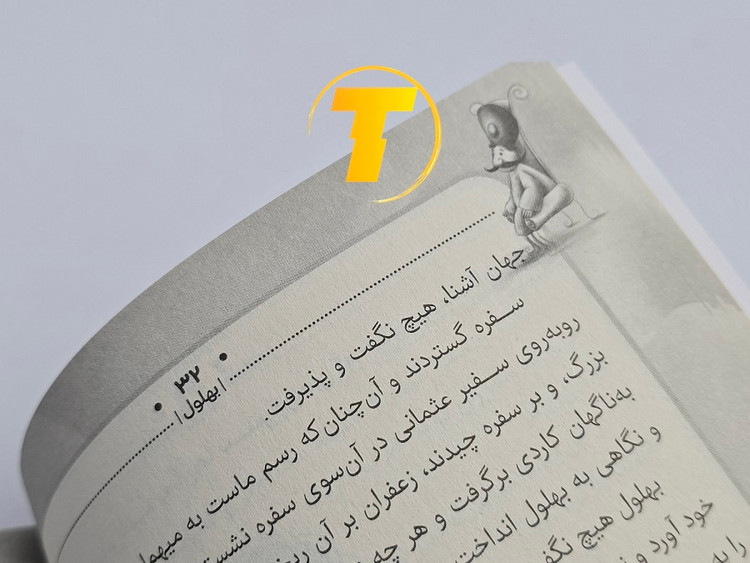 T
• ۳۲ •
| بهلول |
جهان آشنا، هیچ نگفت و پذیرفت.
سفره گستردند و آن‌چنان که رسم ماست به
روبه‌روی سفیر عثمانی در آن‌سوی سفره
بزرگ، و بر سفره چیدند، زعفران بر آن
به‌ناگهان کاردی برگرفت و هر چه
و نگاهی به بهلول انداخت
بهلول هیچ
خود آورد و
را به